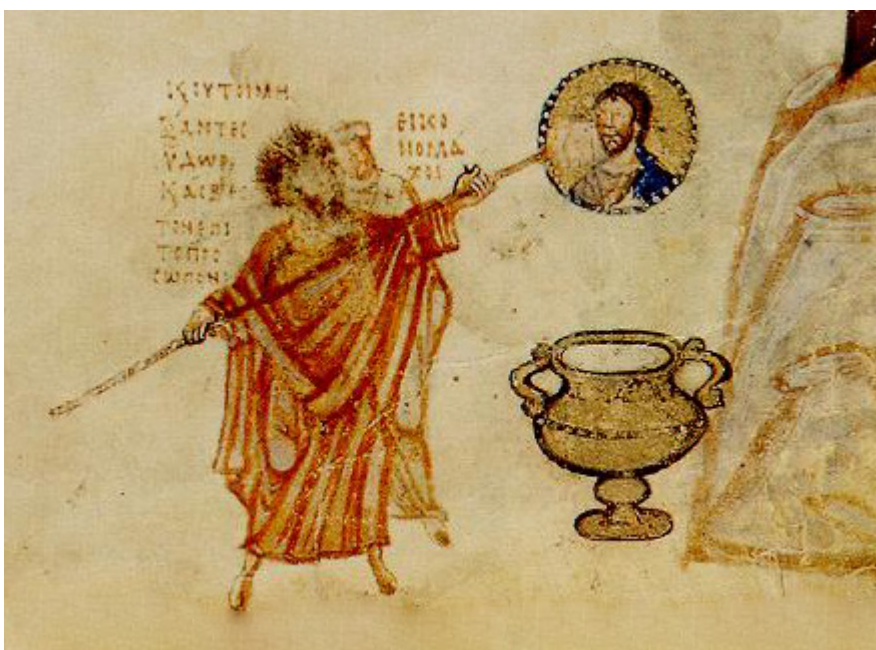 Κ ΟΥΤΟΙ ΜΗ
ΞΑΝΤΕC
ΥΔΩΡ
ΚΑΙ
ΤΟΝ ΕΠΙ
ΤΟ ΠΡΟ
CΩΠΟΝ
ΕΙΚΟ
ΝΟΜΑ
ΧΟΙ